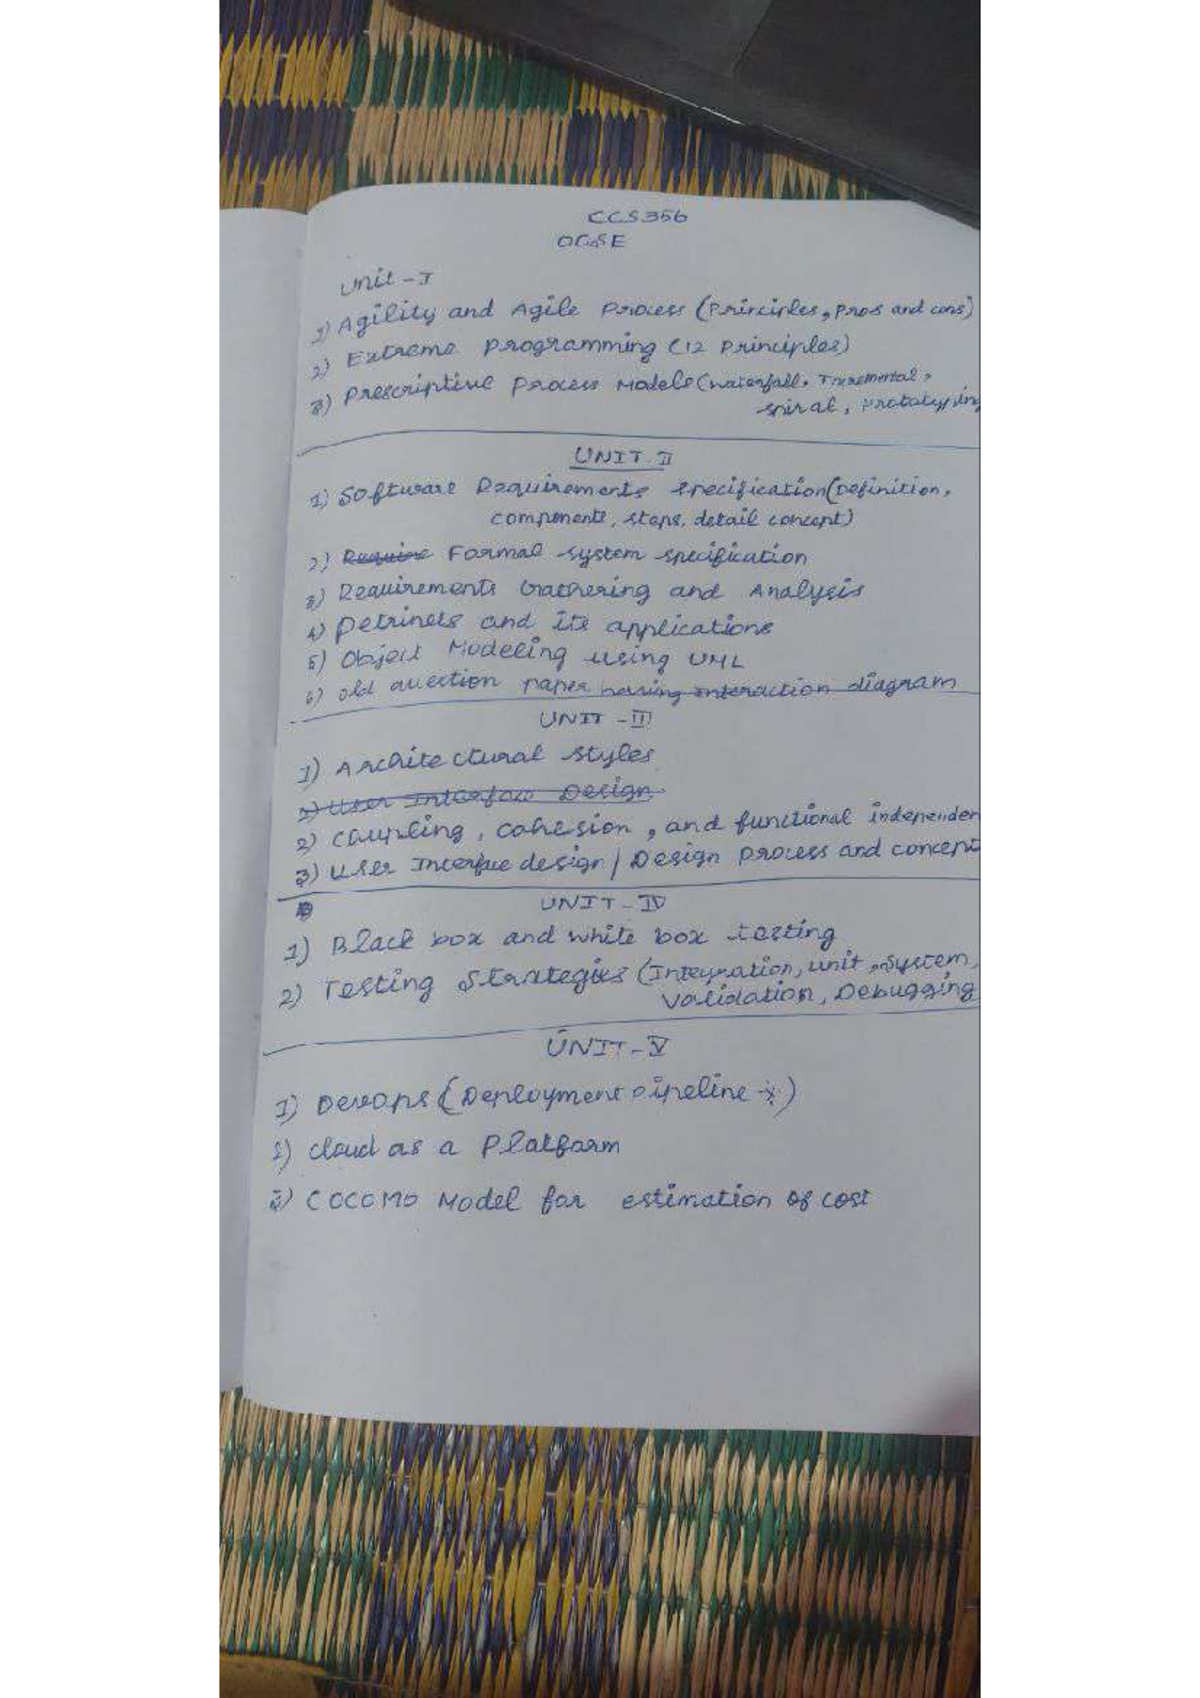 CCS356
OOSE
Unit - I
1) Agility and Agile Process (Principles, Pros and cons)
2) Extreme programming (12 Principles)
3) Prescriptive process Models (Waterfall, Incremental,
spiral, Prototyping
UNIT - II
1) Software Requirements specification (Definition,
components, steps, detail concept)
2) Require Formal system specification
3) Requirements Gathering and Analysis
4) Petrinets and its applications
5) Object Modeling using UML
6) old question paper having interaction diagram
UNIT - III
1) Architectural styles
2) User Interface Design
2) Coupling, Cohesion, and functional independen
3) User Interface design / Design process and concept
UNIT - IV
1) Black box and white box testing
2) Testing Strategies (Integration, unit, System,
Validation, Debugging
UNIT - V
1) Devops (Deployment pipeline)
2) Cloud as a Platform
3) COCOMO Model for estimation of cost